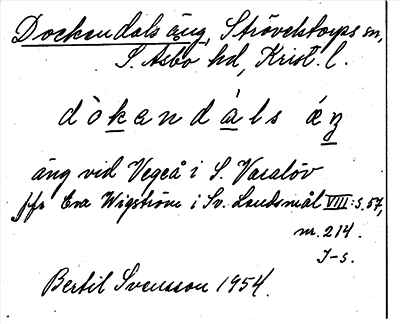 Dockendals äng, Strövelstorps sn,
S. Åsbo hd, Krist. l.
dòkandàls ǽŋ
äng vid Vegeå i S. Vasalöv
jfr Eva Wigström i Sv. Landsmål VIII:3. 57,
nr. 214.
I-s.
Bertil Svensson 1954.